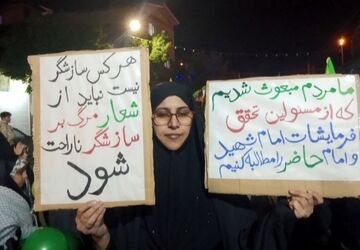 ما مردم مبعوث شدیم
که از مسئولین تحقق
فرمایشات امام شهید
و امام حاضر را مطالبه کنیم
هرکس سازشگر
نیست نباید از
شعار مرگ بر
سازشگر ناراحت
شود